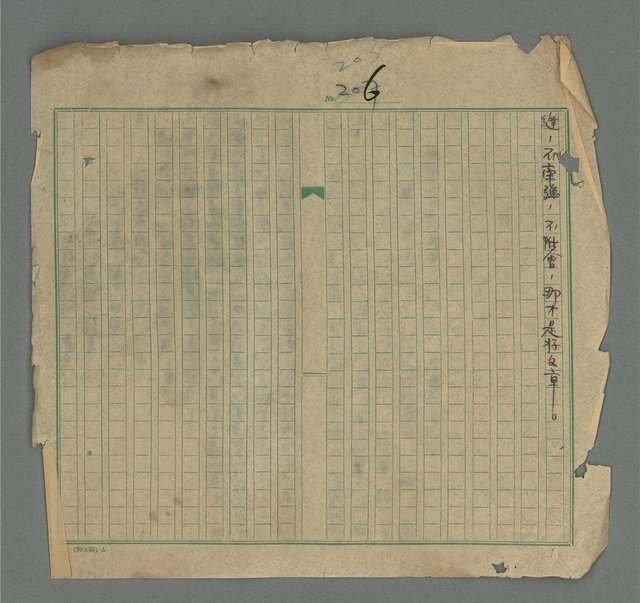 205
No. 206
縫，不牽強，不附會，那才是好文章。
(20×20) 上